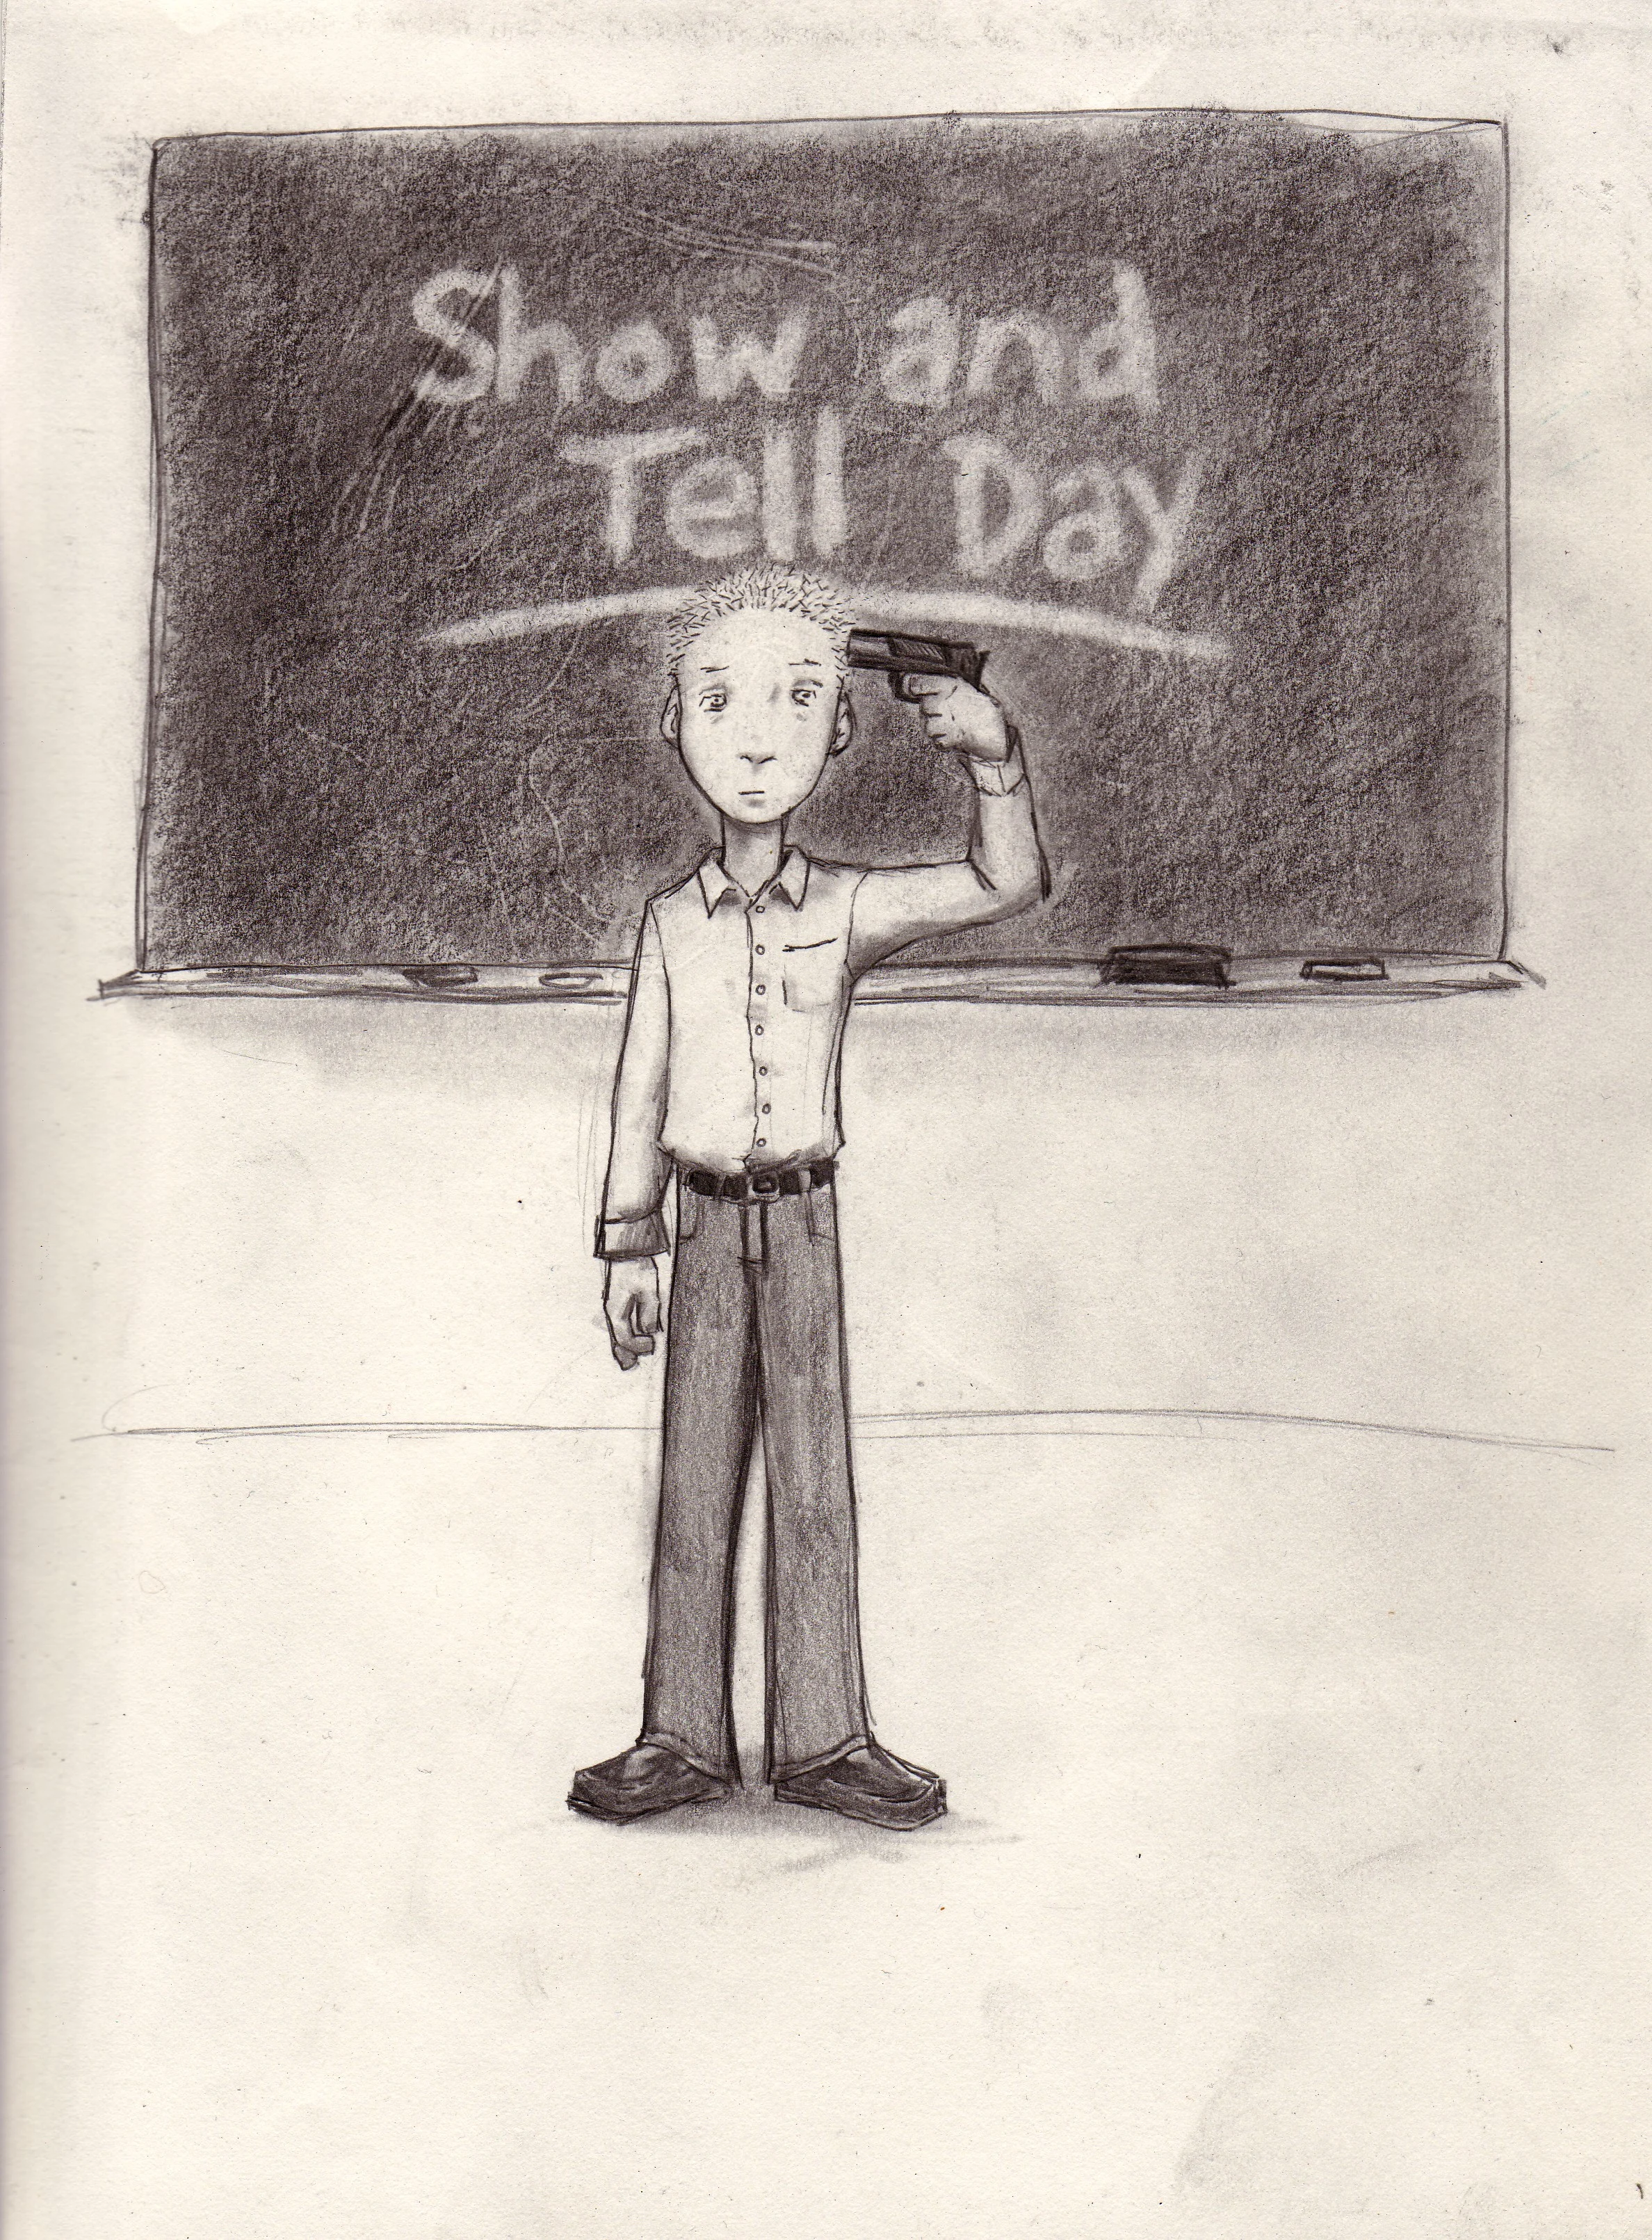 Show and
Tell Day